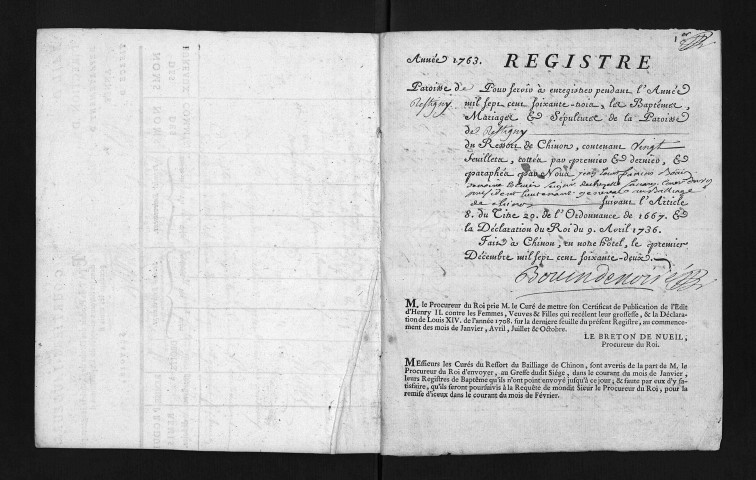 1er
Année 1763. REGISTRE
Paroisse de Restigny
Pour servir à enregistrer pendant l'Année
mil sept cent soixante-trois, les Baptêmes,
Mariages & Sépultures de la Paroisse
de Restigny
du Ressort de Chinon, contenant Vingt
feuillets, cottés par premier & dernier, &
paraphés par Nous
président lieutenant general au Bailliage
de chinon suivant l'Article
8. du Titre 29. de l'Ordonnance de 1667. &
la Déclaration du Roi du 9. Avril 1736.
Fait à Chinon, en notre hôtel, le premier
Décembre mil sept cent soixante-deux.
M. le Procureur du Roi prie M. le Curé de mettre son Certificat de Publication de l'Edit
d'Henry II. contre les Femmes, Veuves & Filles qui recélent leur grossesse, & la Déclara-
tion de Louis XIV. de l'année 1708. sur la derniere feuille du présent Registre, au commence-
ment des mois de Janvier, Avril, Juillet & Octobre.
LE BRETON DE NUEIL,
Procureur du Roi.
MEssieurs les Curés du Ressort du Bailliage de Chinon, sont avertis de la part de M. le
Procureur du Roi d'envoyer, au Greffe dudit Siége, dans le courant du mois de Janvier,
leurs Registres de Baptême qu'ils n'ont point envoyé jusqu'à ce jour; & faute par eux d'y sa-
tisfaire, qu'ils seront poursuivis à la Requête de mondit Sieur le Procureur du Roi, pour la
remise d'iceux dans le courant du mois de Février.